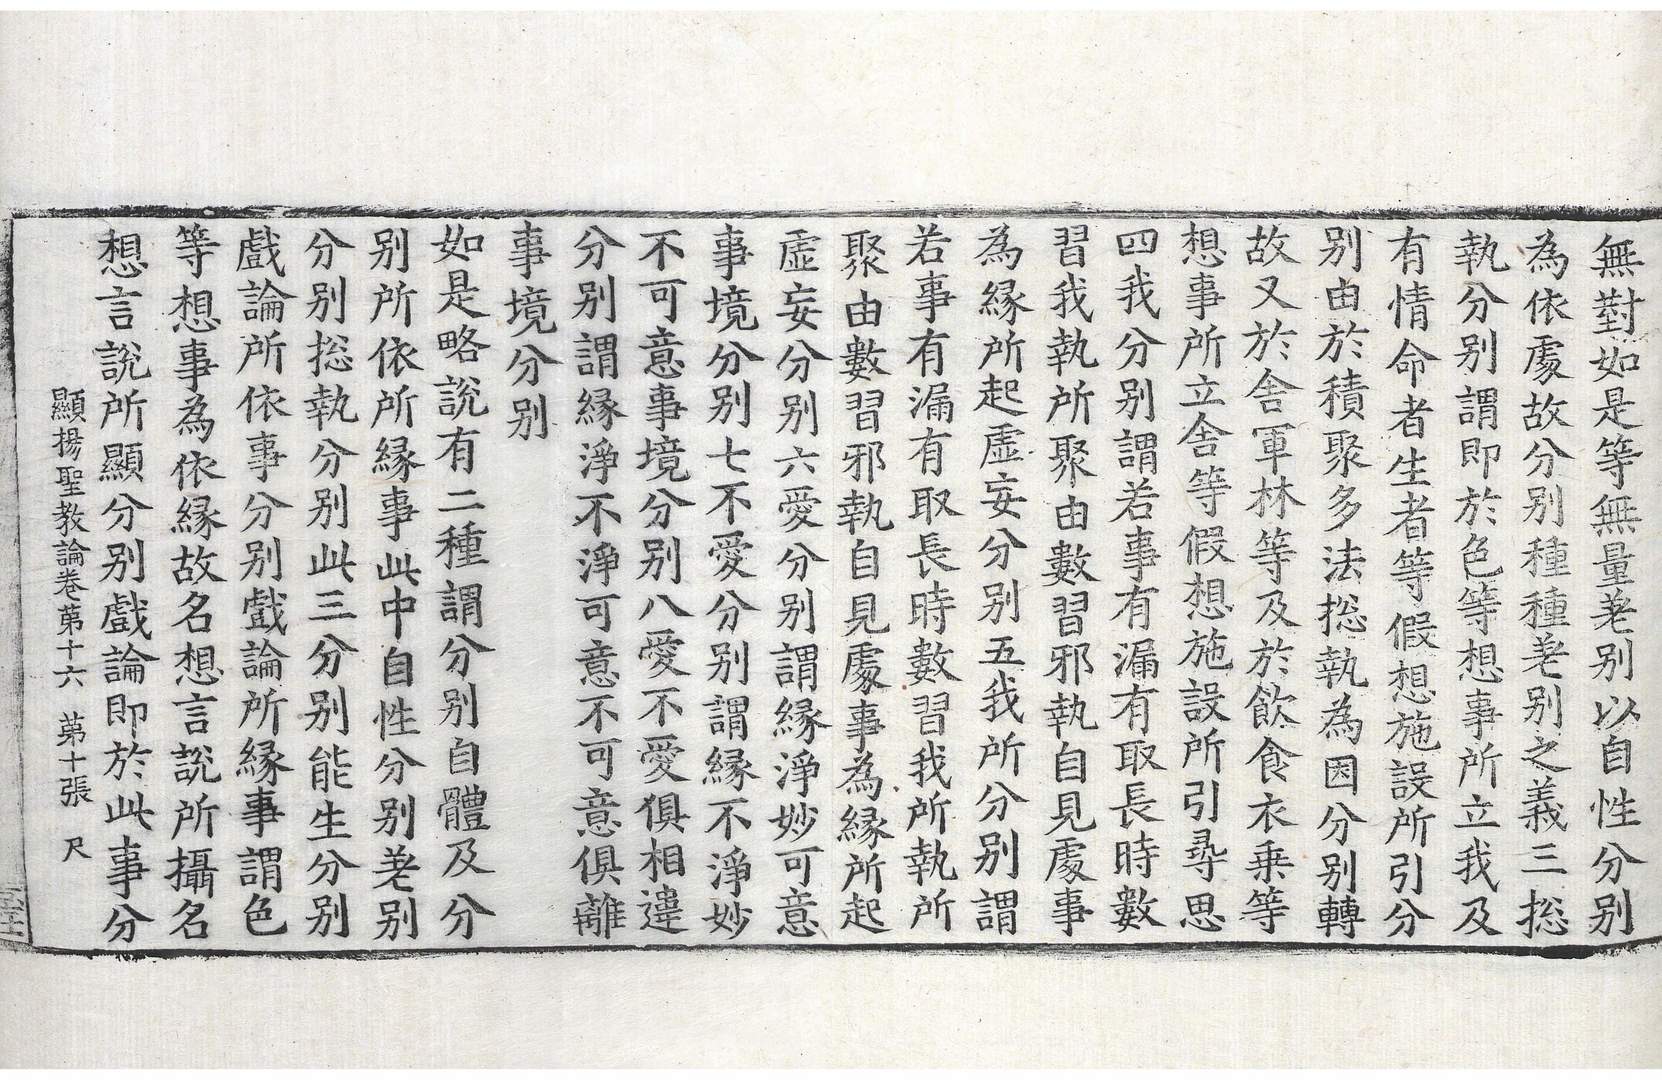 無對如是等無量差别以自性分别
為依處故分别種種差别之義三揔
執分别謂即於色等想事所立我及
有情命者生者等假想施設所引分
别由於積聚多法揔執為因分别轉
故又於舍軍林等及於飲食衣乗等
想事所立舍等假想施設所引尋思
四我分别謂若事有漏有取長時數
習我執所聚由數習邪執自見處事
為縁所起虛妄分别五我所分别謂
若事有漏有取長時數習我所執所
聚由數習邪執自見處事為縁所起
虛妄分别六愛分别謂縁淨妙可意
事境分别七不愛分别謂縁不淨妙
不可意事境分别八愛不愛俱相違
分别謂縁淨不淨可意不可意俱離
事境分别
如是略說有二種謂分别自體及分
别所依所縁事此中自性分别差别
分别揔執分别此三分别能生分别
戲論所依事分别戲論所縁事謂色
等想事為依縁故名想言說所攝名
想言說所顯分别戲論即於此事分
顯揚聖教論卷苐十六 苐十張 尺